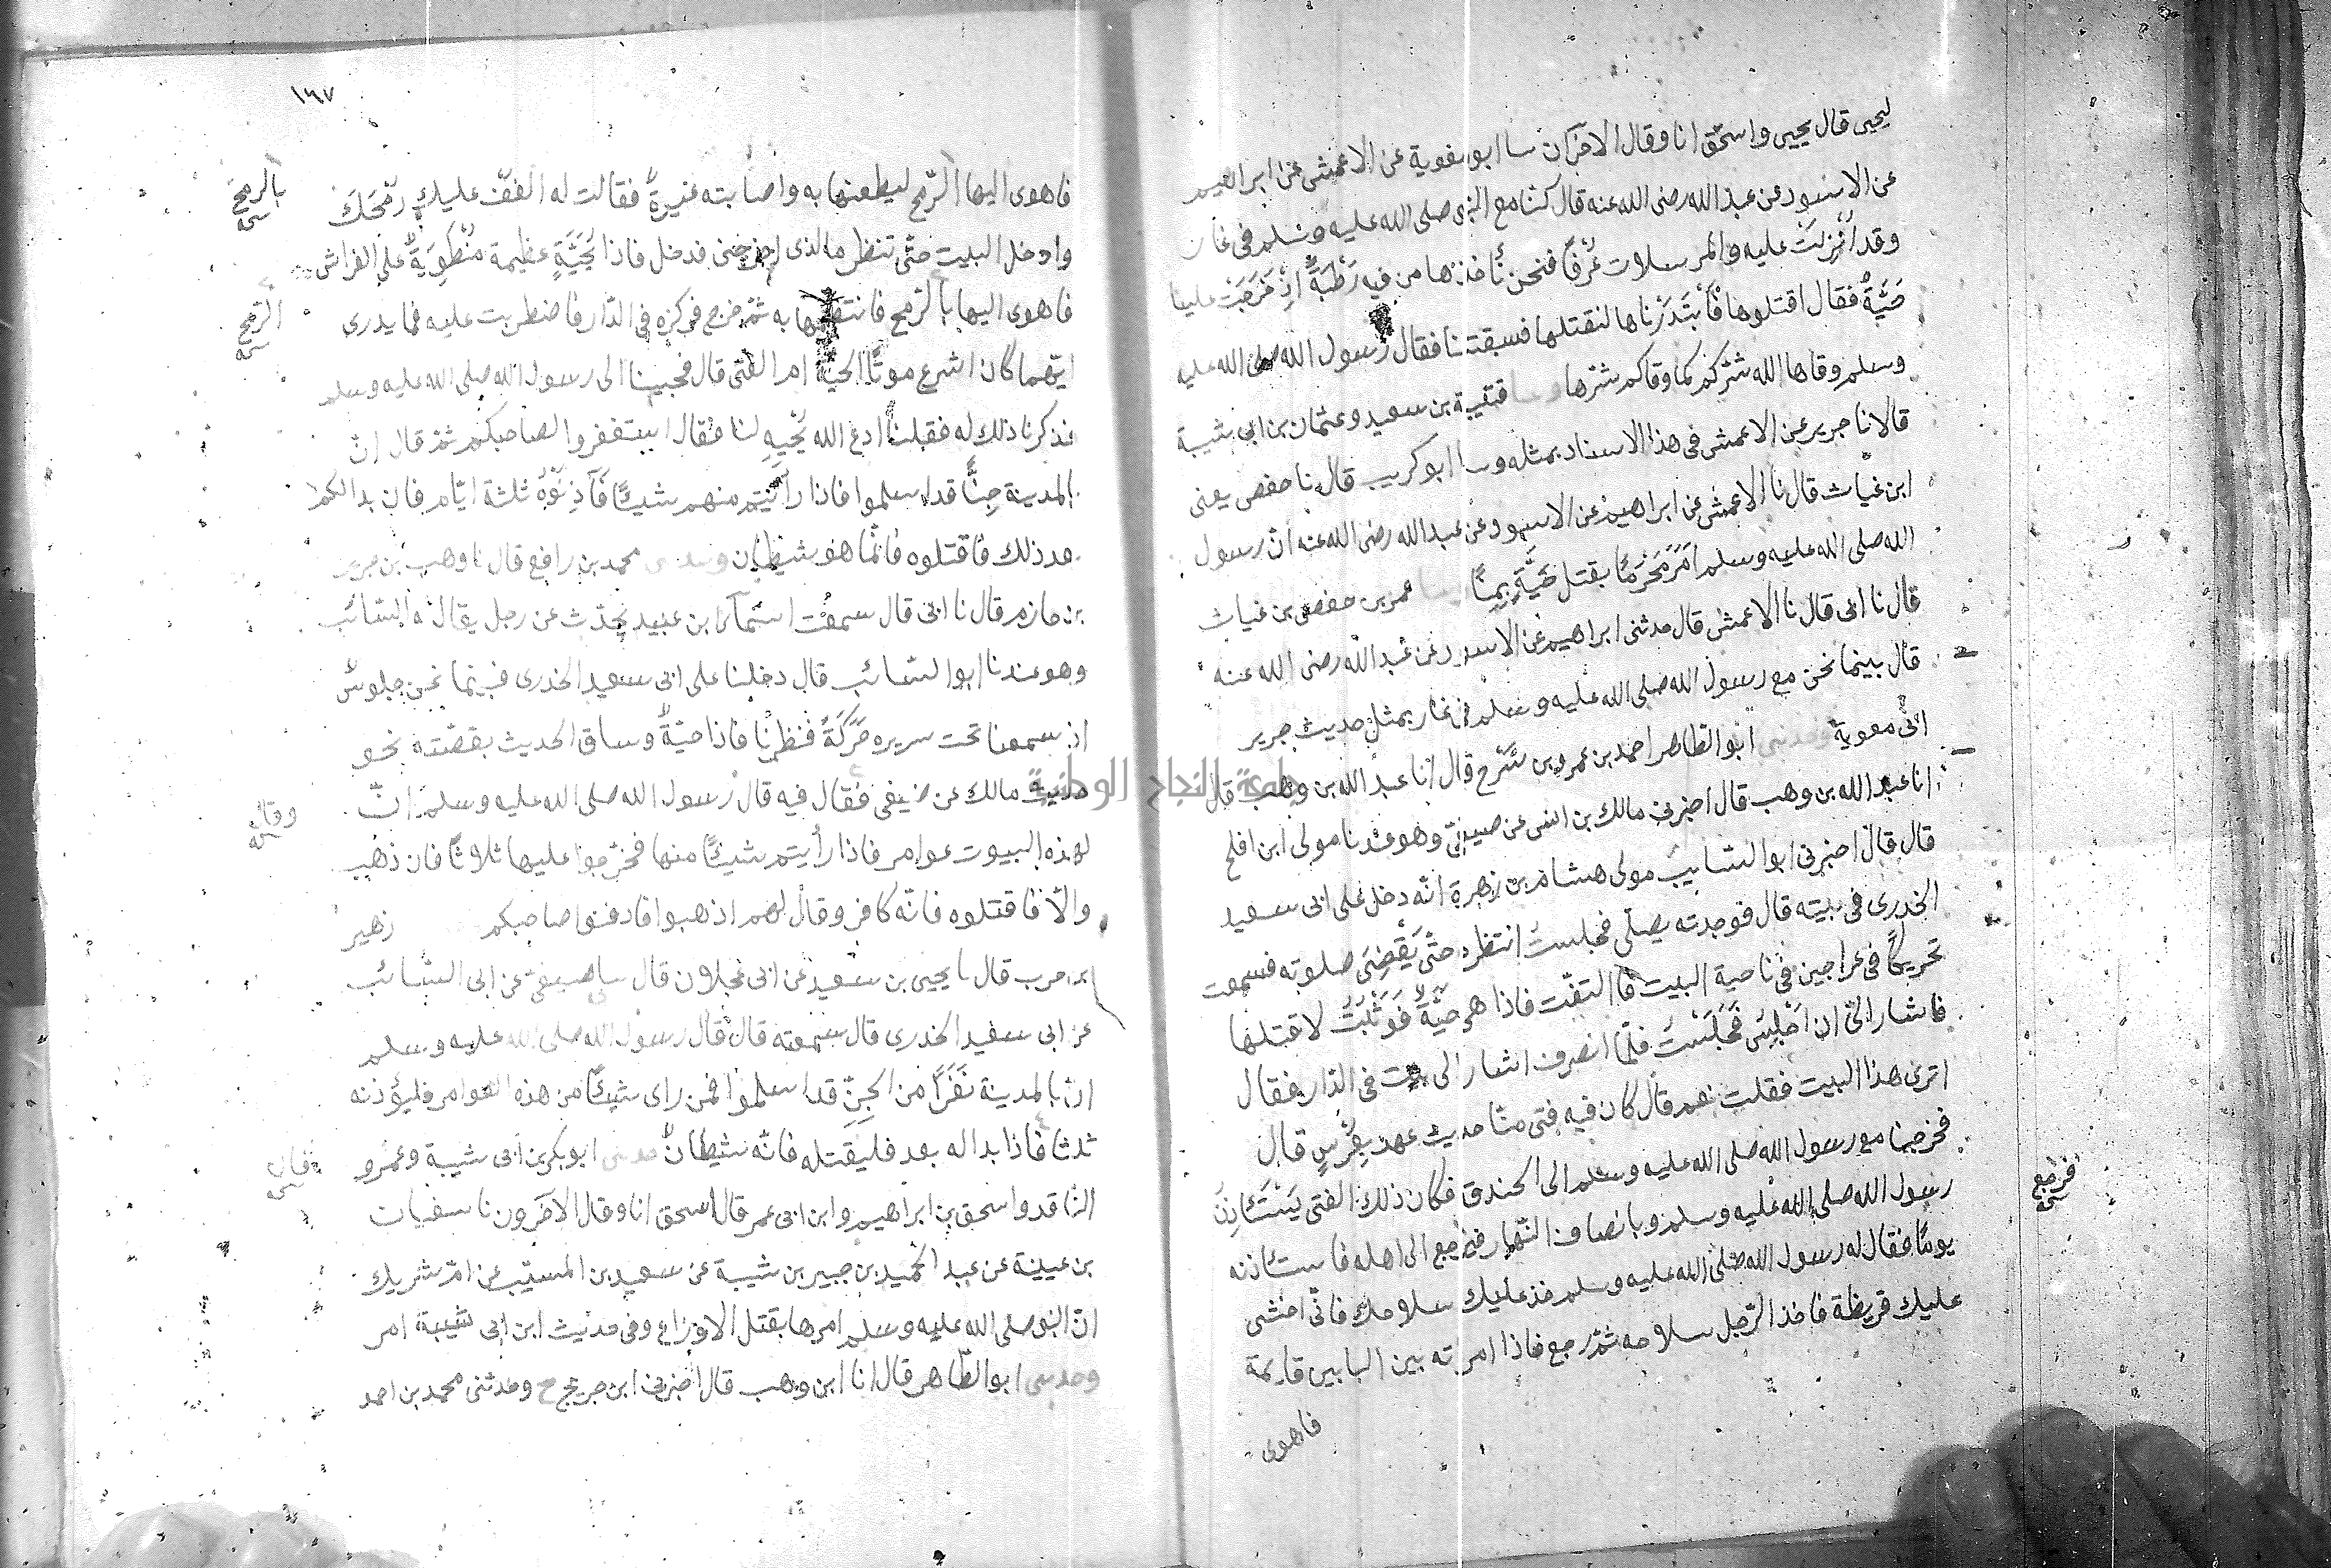 ليحيى قال يحيى واسحق انا وقال الاخران نا ابو معوية عن الاعمش عن ابراهيم
عن الاسود عن عبد الله رضى الله عنه قال كنا مع النبى صلى الله عليه وسلم فى غار
وقد اُنْزِلَتْ عليه والمرسلات عُرْفًا فنحن نأخذها من فيه رَطْبَةً اذ خَرَجَتْ علينا
حَيَّةٌ فقال اقتلوها فَابْتَدَرْناها لنقتلها فسبقتنا فقال رسول الله صلى الله عليه
وسلم وقاها الله شرّكم كما وقاكم شرّها وحدثنا قتيبة بن سعيد وعثمان بن ابى شيبة
قالا نا جرير عن الاعمش فى هذا الاسناد بمثله وحدثنا ابو كريب قال نا حفص يعنى
ابن غياث قال نا الاعمش عن ابراهيم عن الاسود عن عبد الله رضى الله عنه ان رسول
الله صلى الله عليه وسلم اَمَرَ مُحْرِمًا بقتل حَيَّةٍ بِمِنًا وحدثنا عمر بن حفص بن غياث
قال نا ابى قال نا الاعمش قال حدثنى ابراهيم عن الاسود عن عبد الله رضى الله عنه
قال بينما نحن مع رسول الله صلى الله عليه وسلم فى غار بمثل حديث جرير
ابى معوية وحدثنى ابو الطاهر احمد بن عمرو بن سَرْح قال انا عبد الله بن وهب قال
انا عبد الله بن وهب قال اخبرنى مالك بن انس عن صيفىّ وهو عندنا مولى ابن افلح
قال قال اخبرنى ابو السّايب مولى هشام بن زهرة انّه دخل على ابى سعيد
الخدرى فى بيته قال فوجدته يصلّى فجلستُ انتظره حتّى يَقْضِىَ صلوته فسمعت
تحريكًا فى عراجين فى ناحية البيت فالتفتّ فاذا هى حَيَّةٌ فَوَثَبْتُ لاقتلها
فاشار الىّ ان اجْلِسْ فَجَلَسْتُ فلمّا انصرف اشار الى بيت فى الدّار فقال
اترى هذا البيت فقلت نعم قال كان فيه فتى منّا حديث عهد بِعُرْسٍ قال
فخرجنا مع رسول الله صلى الله عليه وسلم الى الخندق فكان ذلك الفتى يَسْتَأذِنُ
رسول الله صلى الله عليه وسلم وبانصاف النّهار فيرجع الى اهله فاستأذنه
فرجع
يومًا فقال له رسول الله صلى الله عليه وسلم خذ عليك سلاحك فانّى اخشى
عليك قريظة فاخذ الرّجل سلاحه ثمّ رجع فاذا امرته بين البابين قايمة
فاهوى
١٦٧
فاهوى اليها الرّمح ليطعنها به واصابته غيرةٌ فقالت له اكفف عليك رُمْحَكَ
بالرمح
وادخل البيت حتّى تنظر ما الذى اخرجنى فدخل فاذا بِحَيَّةٍ عظيمة مُنْطَوِيَةٌ على الفراش
فاهوى اليها بالرّمح فانتظمها به ثمّ خرج فركزه فى الدّار فاضطربت عليه فما يدرى
الرمح
ايّهما كان اسرع موتًا الحيّة ام الفتى قال فجينا الى رسول الله صلى الله عليه وسلم
فذكرنا ذلك له فقلنا ادع الله يُحْيِهِ لنا فقال استغفروا لصاحبكم ثمّ قال انّ
بالمدينة جِنًّا قد اسلموا فاذا رأيتم منهم شيئًا فَآذِنُوهُ ثلثة ايّام فان بدا لكم
بعد ذلك فاقتلوه فانّما هو شيطان وحدثنى محمد بن رافع قال نا وهب بن جرير
بن حازم قال نا ابى قال سمعت اسمآء بن عبيد يحدّث عن رجل يقال له السّائب
وهو عندنا ابو السّائب قال دخلنا على ابى سعيد الخدرى فبينما نحن جلوسٌ
اذ سمعنا تحت سريره حَرَكَةً فنظرنا فاذا حيّةٌ وساق الحديث بقصّته نحو
حديث مالك عن صيفى فقال فيه قال رسول الله صلى الله عليه وسلم انّ
وقال
لهذه البيوت عوامر فاذا رأيتم شيئًا منها فحَرِّجوا عليها ثلاثًا فان ذهب
والّا فاقتلوه فانّه كافر وقال لهم اذهبوا فادفنوا صاحبكم زهير
ابن حرب قال نا يحيى بن سعيد عن ابن عجلان قال نا صيفى عن ابى السّائب
عن ابى سعيد الخدرى قال سمعته قال قال رسول الله صلى الله عليه وسلم
انّ بالمدينة نَفَرًا من الجِنِّ قد اسلموا فمن راى شيئًا من هذه العوامر فليؤذنه
ثلثا فاذا بدا له بعد فليقتله فانّه شيطانٌ حدثنا ابو بكر بن ابى شيبة وعمرو
فان
النّاقد واسحق بن ابراهيم وابن ابى عمر قال اسحق انا وقال الاخرون نا سفيان
بن عيينة عن عبد الحميد بن جبير بن شيبة عن سعيد بن المسيّب عن امّ شريك
انّ النبى صلى الله عليه وسلم امرها بقتل الاوزاع وفى حديث ابن ابى شيبة امر
وحدثنى ابو الطّاهر قال انا ابن وهب قال اخبرنى ابن جريج ح وحدثنى محمد بن احمد
جامعة النجاح الوطنية